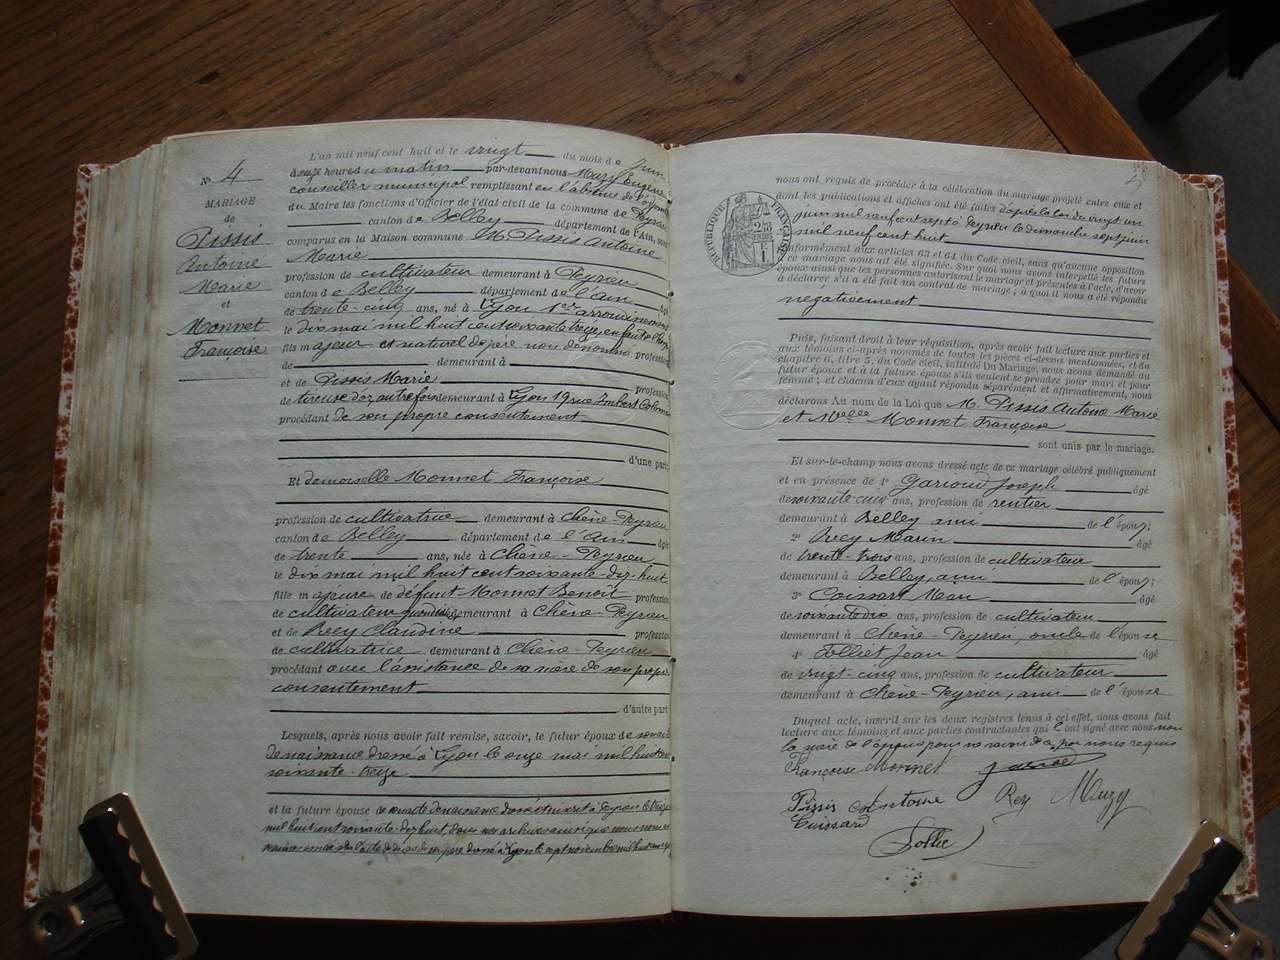 N° 4
MARIAGE
de
Pissis
Antoine
Marie
et
Monnet
Françoise
L'an mil neuf cent huit et le vingt du mois de juin
à onze heures du matin par-devant nous Muzy Eugène
conseiller municipal remplissant en l'absence de
du Maire les fonctions d'Officier de l'état civil de la commune de Peyrieu
canton de Belley département de l'Ain, sont
comparus en la Maison commune M. Pissis Antoine
Marie
profession de cultivateur demeurant à Peyrieu
canton de Belley département de l'Ain âgé
de trente-cinq ans, né à Lyon 1er arrondissement
le dix mai mil huit cent soixante treize, enfant de l'hospice
fils majeur et naturel de père non dénommé profession
de demeurant à
et de Pissis Marie profession
de tireuse d'or autrefois demeurant à Lyon 19 rue Imbert Colomès
procédant de son propre consentement
d'une part
Et demoiselle Monnet Françoise
profession de cultivatrice demeurant à Chêne-Peyrieu
canton de Belley département de l'Ain âgée
de trente ans, née à Chêne-Peyrieu
le dix mai mil huit cent soixante-dix-huit
fille majeure de défunt Monnet Benoît profession
de cultivateur demeurant à Chêne-Peyrieu
et de Rey Claudine profession
de cultivatrice demeurant à Chêne-Peyrieu
procédant avec l'assistance de sa mère de son propre
consentement
d'autre part
Lesquels, après nous avoir fait remise, savoir, le futur époux de son acte
de naissance dressé à Lyon le onze mai mil huit cent
soixante-treize
et la future épouse de son acte de naissance dressé à Peyrieu le
mil huit cent soixante-dix huit, dans nos archives
de l'acte de décès de son père dressé à Lyon le sept novembre mil huit cent
nous ont requis de procéder à la célébration du mariage projeté entre eux et
dont les publications et affiches ont été faites d'après la loi du vingt un
juin mil neuf cent sept à Peyrieu le dimanche sept juin
mil neuf cent huit
RÉPUBLIQUE FRANÇAISE
conformément aux articles 63 et 64 du Code civil, sans qu'aucune opposition
à ce mariage nous ait été signifiée. Sur quoi nous avons interpellé les futurs
époux ainsi que les personnes autorisant le mariage et présentes à l'acte, d'avoir
à déclarer s'il a été fait un contrat de mariage ; à quoi il nous a été répondu
négativement
Puis, faisant droit à leur réquisition, après avoir fait lecture aux parties et
aux témoins ci-après nommés de toutes les pièces ci-dessus mentionnées, et du
chapitre 6, titre 5, du Code civil, intitulé Du Mariage, nous avons demandé au
futur époux et à la future épouse s'ils veulent se prendre pour mari et pour
femme ; et chacun d'eux ayant répondu séparément et affirmativement, nous
déclarons Au nom de la Loi que M. Pissis Antoine Marie
et Melle Monnet Françoise
sont unis par le mariage.
Et sur-le-champ nous avons dressé acte de ce mariage célébré publiquement
et en présence de 1° Gariod Joseph âgé
de soixante-cinq ans, profession de rentier
demeurant à Belley ami de l'époux ;
2° Rey Marin âgé
de trente-trois ans, profession de cultivateur
demeurant à Belley, ami de l'époux ;
3° Coissard Jean âgé
de soixante-dix ans, profession de cultivateur
demeurant à Chêne-Peyrieu, oncle de l'épouse
4° Jolliet Jean âgé
de vingt-cinq ans, profession de cultivateur
demeurant à Chêne-Peyrieu, ami de l'épouse
Duquel acte, inscrit sur les deux registres tenus à cet effet, nous avons fait
lecture aux témoins et aux parties contractantes qui l'ont signé avec nous non
la mère de l'épouse pour ne savoir de ce par nous requis
Françoise Monnet
Pissis Antoine Rey Muzy
Coissard
Jollie